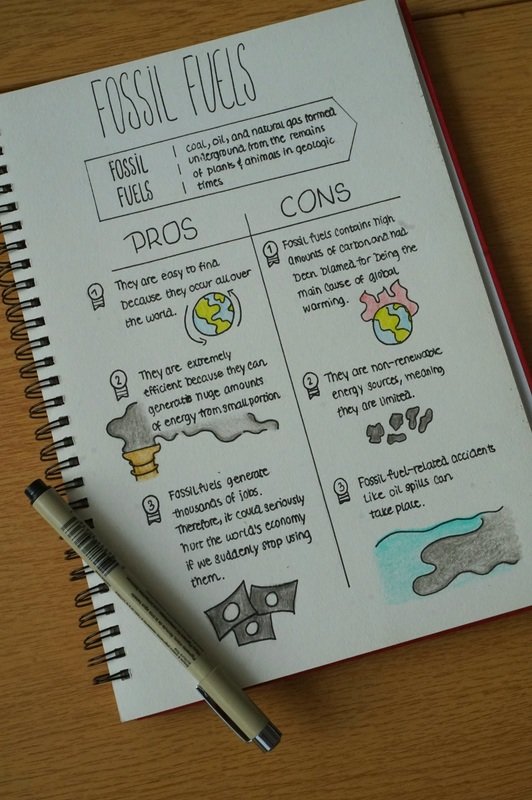 FOSSIL FUELS
FOSSIL
FUELS
coal, oil, and natural gas formed
underground from the remains
of plants & animals in geologic
times
PROS
1
They are easy to find
because they occur all over
the world.
2
They are extremely
efficient because they can
generate huge amounts
of energy from small portion
3
Fossil fuels generate
thousands of jobs.
Therefore, it could seriously
hurt the world's economy
if we suddenly stop using
them.
CONS
1
Fossil fuels contains high
amounts of carbon and had
been blamed for being the
main cause of global
warming.
2
They are non-renewable
energy sources, meaning
they are limited.
3
Fossil fuel-related accidents
like oil spills can
take place.